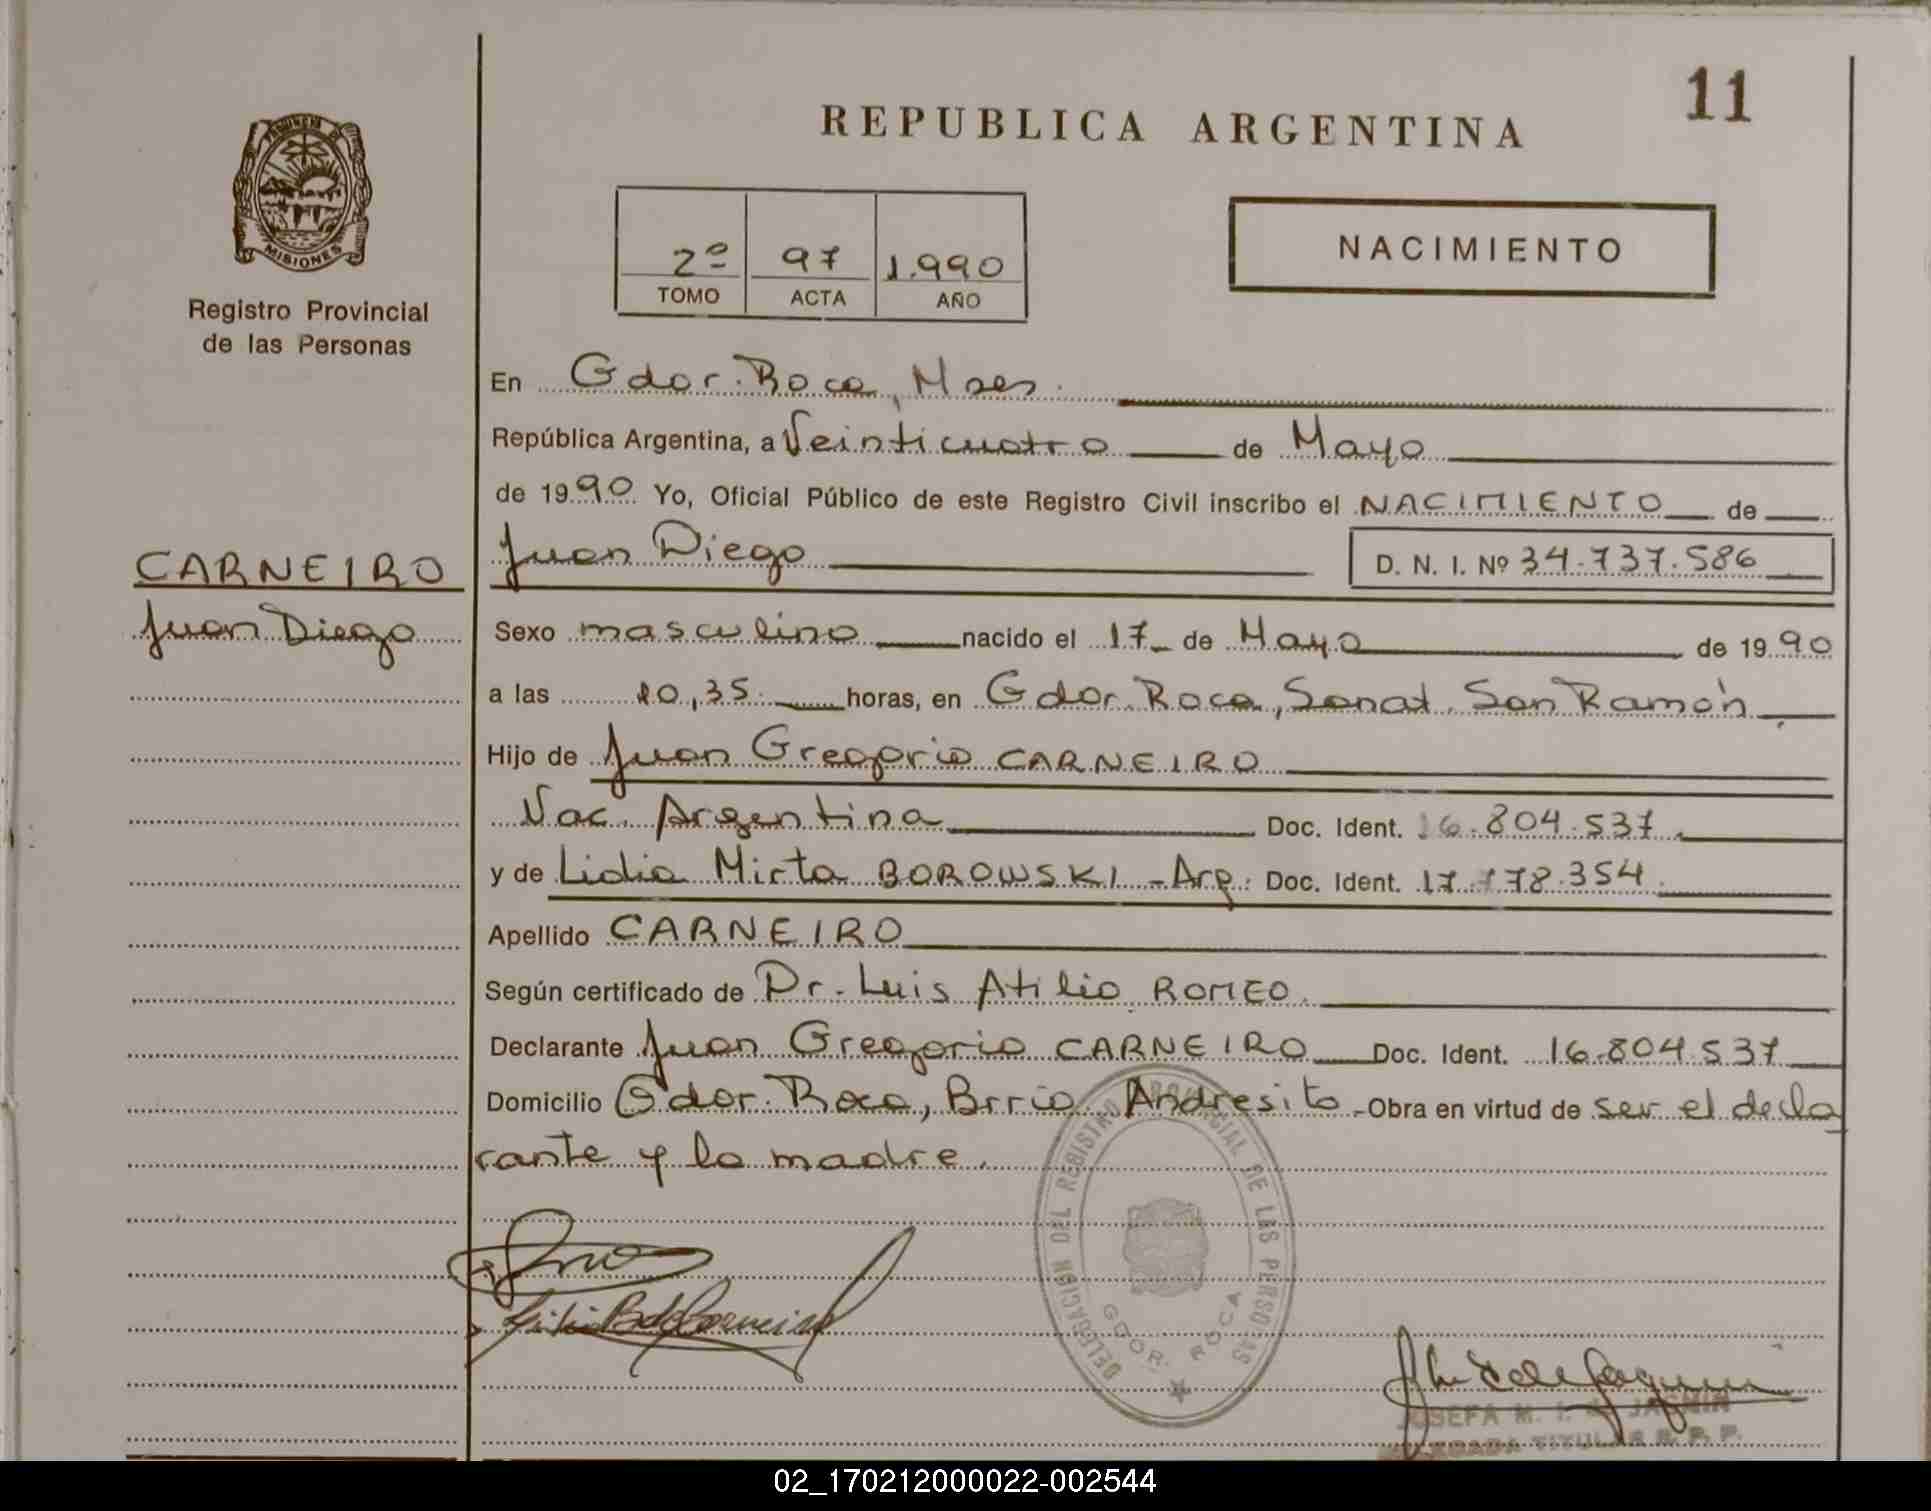 11
REPUBLICA ARGENTINA
PROVINCIA DE
MISIONES
Registro Provincial
de las Personas
2º 97 1.990
TOMO ACTA AÑO
NACIMIENTO
En Gdor. Roca, Mnes.
República Argentina, a Veinticuatro de Mayo
de 1990 Yo, Oficial Público de este Registro Civil inscribo el NACIMIENTO de
CARNEIRO
Juan Diego
Juan Diego D. N. I. Nº 34.737.586
Sexo masculino nacido el 17 de Mayo de 1990
a las 10,35 horas, en Gdor. Roca, Sanat. San Ramón
Hijo de Juan Gregorio CARNEIRO
Nac. Argentina Doc. Ident. 16.804.537
y de Lidia Mirta BOROWSKI - Arg. Doc. Ident. 17.178.354
Apellido CARNEIRO
Según certificado de Dr. Luis Atilio ROMEO.
Declarante Juan Gregorio CARNEIRO Doc. Ident. 16.804.537
Domicilio Gdor. Roca, Brrio Andresito - Obra en virtud de ser el decla
rante y la madre.
DELEGACION DEL REGISTRO PROVINCIAL DE LAS PERSONAS
GDOR. ROCA
JOSEFA M. I. de JACMIN
DELEGADA TITULAR R. P. P.
02_170212000022-002544